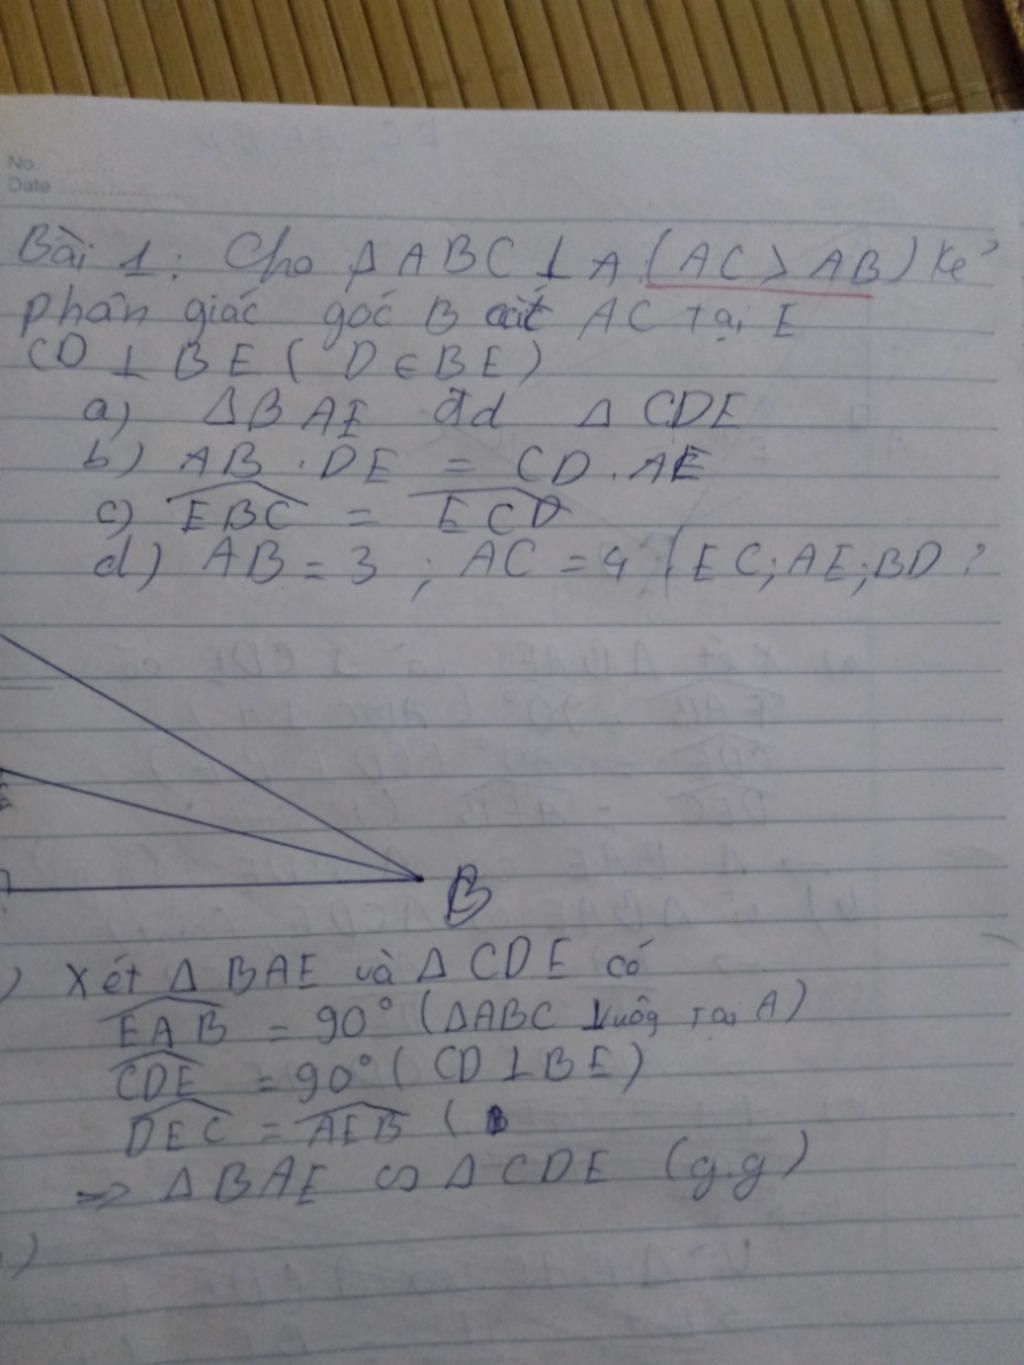 No.
Date
Bài 1: Cho Δ ABC ⊥ A (AC > AB) kẻ
phân giác góc B cắt AC tại E
CD ⊥ BE ( D ∈ BE)
a) ΔBAE đd Δ CDE
b) AB . DE = CD . AE
c) EBC = ECD
d) AB = 3 ; AC = 4 (EC; AE; BD ?
B
) Xét Δ BAE và Δ CDE có
EAB = 90° (ΔABC vuông tại A)
CDE = 90° ( CD ⊥ BE)
DEC = AEB (
=> Δ BAE ∽ Δ CDE (g.g)
)